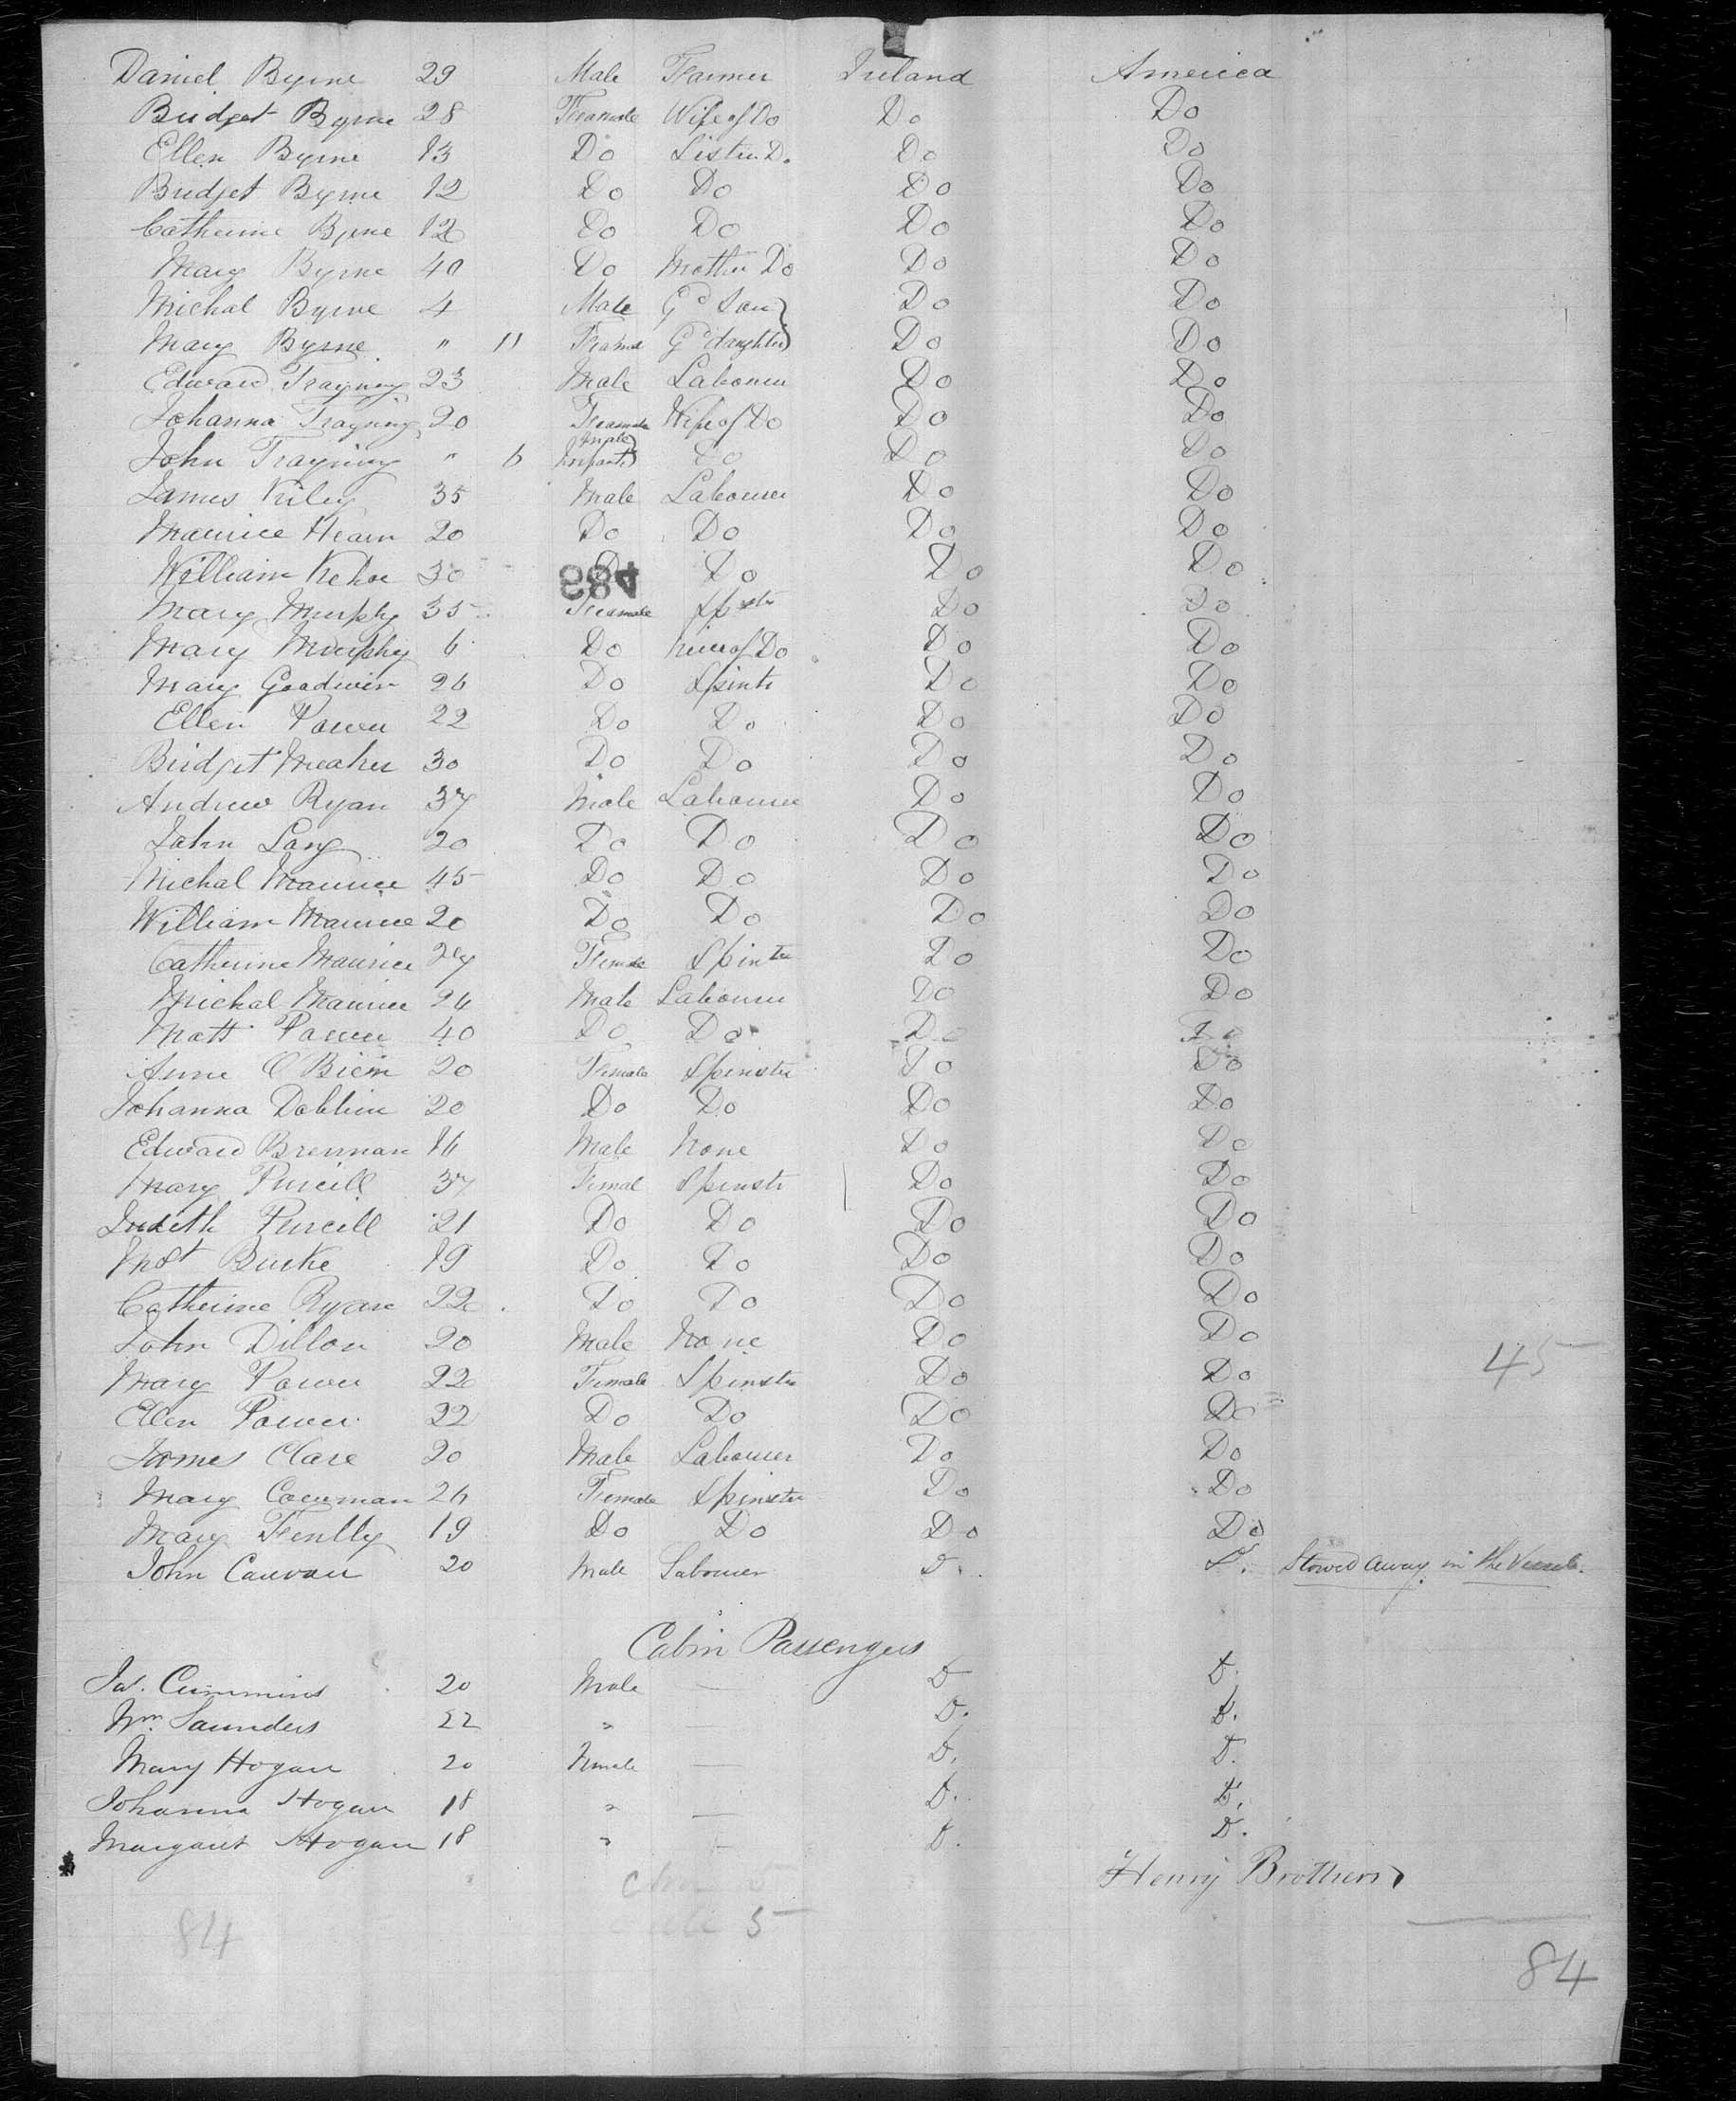 Daniel Byrne 29 Male Farmer Ireland America
Bridget Byrne 28 Feamale Wife of Do Do Do
Ellen Byrne 13 Do Sister Do Do Do
Bridget Byrne 12 Do Do Do Do
Catherine Byrne 12 Do Do Do Do
Mary Byrne 40 Do Mother Do Do Do
Michal Byrne 4 Male Gd Son Do Do
Mary Byrne " 11 Feamal Gd daughter Do Do
Edward Trayning 23 Male Labourer Do Do
Johanna Trayning 20 Feamale Wife of Do Do Do
John Trayning " 6 Male Infant Do Do Do
James Kiley 35 Male Labourer Do Do
Maurice Hearn 20 Do Do Do Do
William Kehoe 30 Do Do Do Do
483
Mary Murphy 35 Feamale Spstr Do Do
Mary Murphy 6 Do niece of Do Do Do
Mary Goodwin 26 Do Spinstr Do Do
Ellen Power 22 Do Do Do Do
Bridget Meaher 30 Do Do Do Do
Andrew Ryan 37 Male Labourer Do Do
John Lang 20 Do Do Do Do
Michal Maurice 45 Do Do Do Do
William Maurice 20 Do Do Do Do
Catherine Maurice 27 Female Spinter Do Do
Michal Maurice 24 Male Labourer Do Do
Matt Power 40 Do Do Do Do
Anne O Brien 20 Female Spinster Do Do
Johanna Dobbin 20 Do Do Do Do
Edward Brennan 16 Male None Do Do
Mary Purcill 37 Femal Spinstr Do Do
Judith Purcell 21 Do Do Do Do
Mgt Burke 19 Do Do Do Do
Catherine Ryan 22 Do Do Do Do
John Dillon 20 Male None Do Do
45
Mary Power 22 Female Spinster Do Do
Ellen Power 22 Do Do Do Do
James Clare 20 Male Labourer Do Do
Mary Cowman 26 Female Spinster Do Do
Mary Fenlly 19 Do Do Do Do
John Cauvan 20 Male Labourer Do. Do. Stowed away in the Vessel.
Cabin Passengers
Jas. Cummins 20 Male — Do Do.
Wm. Saunders 22 " Do. Do.
Mary Hogan 20 Female — Do. Do.
Johanna Hogan 18 " — Do. Do.
Margaret Hogan 18 " — Do. Do.
Henry Brothers
5
84
84